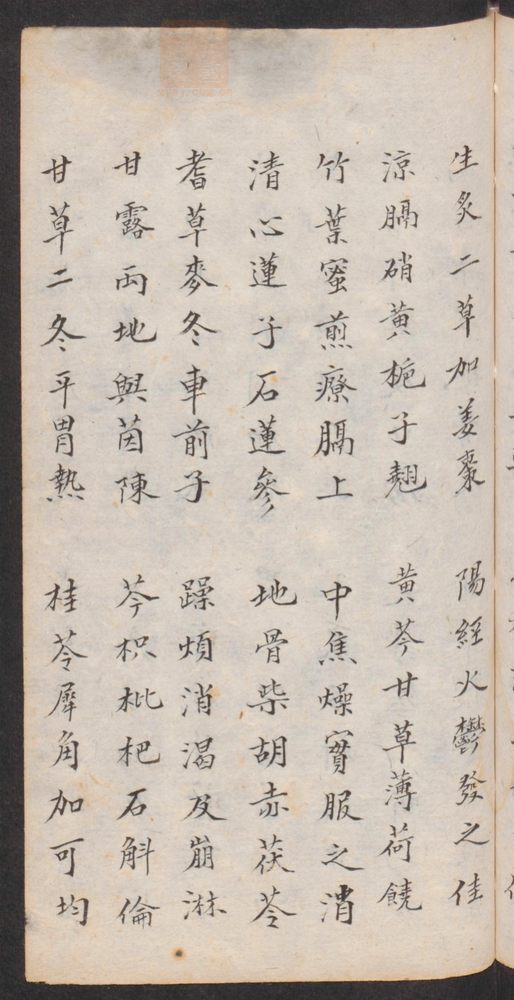 生炙二草加姜棗 陽經火鬱發之佳
涼膈硝黃梔子翹 黃芩甘草薄荷饒
竹葉蜜煎療膈上 中焦燥實服之消
清心蓮子石蓮參 地骨柴胡赤茯苓
耆草麥冬車前子 躁煩消渴及崩淋
甘露兩地與茵陳 芩枳枇杷石斛倫
甘草二冬平胃熱 桂苓犀角加可均